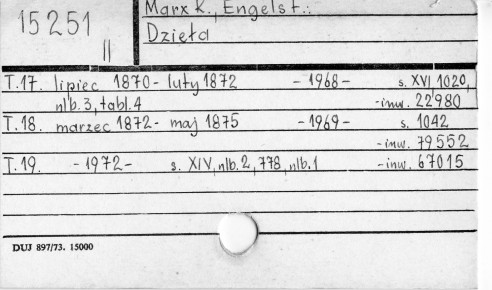 15251
II
Marx K., Engels F.:
Dzieła
T.17. lipiec 1870 - luty 1872 - 1968 - s. XVI, 1020,
nlb. 3, tabl. 4 - inw. 22980
T.18. marzec 1872 - maj 1875 - 1969 - s. 1042
- inw. 79552
T.19. - 1972 - s. XIV, nlb. 2, 778, nlb. 1 - inw. 67015
DUJ 897/73. 15000